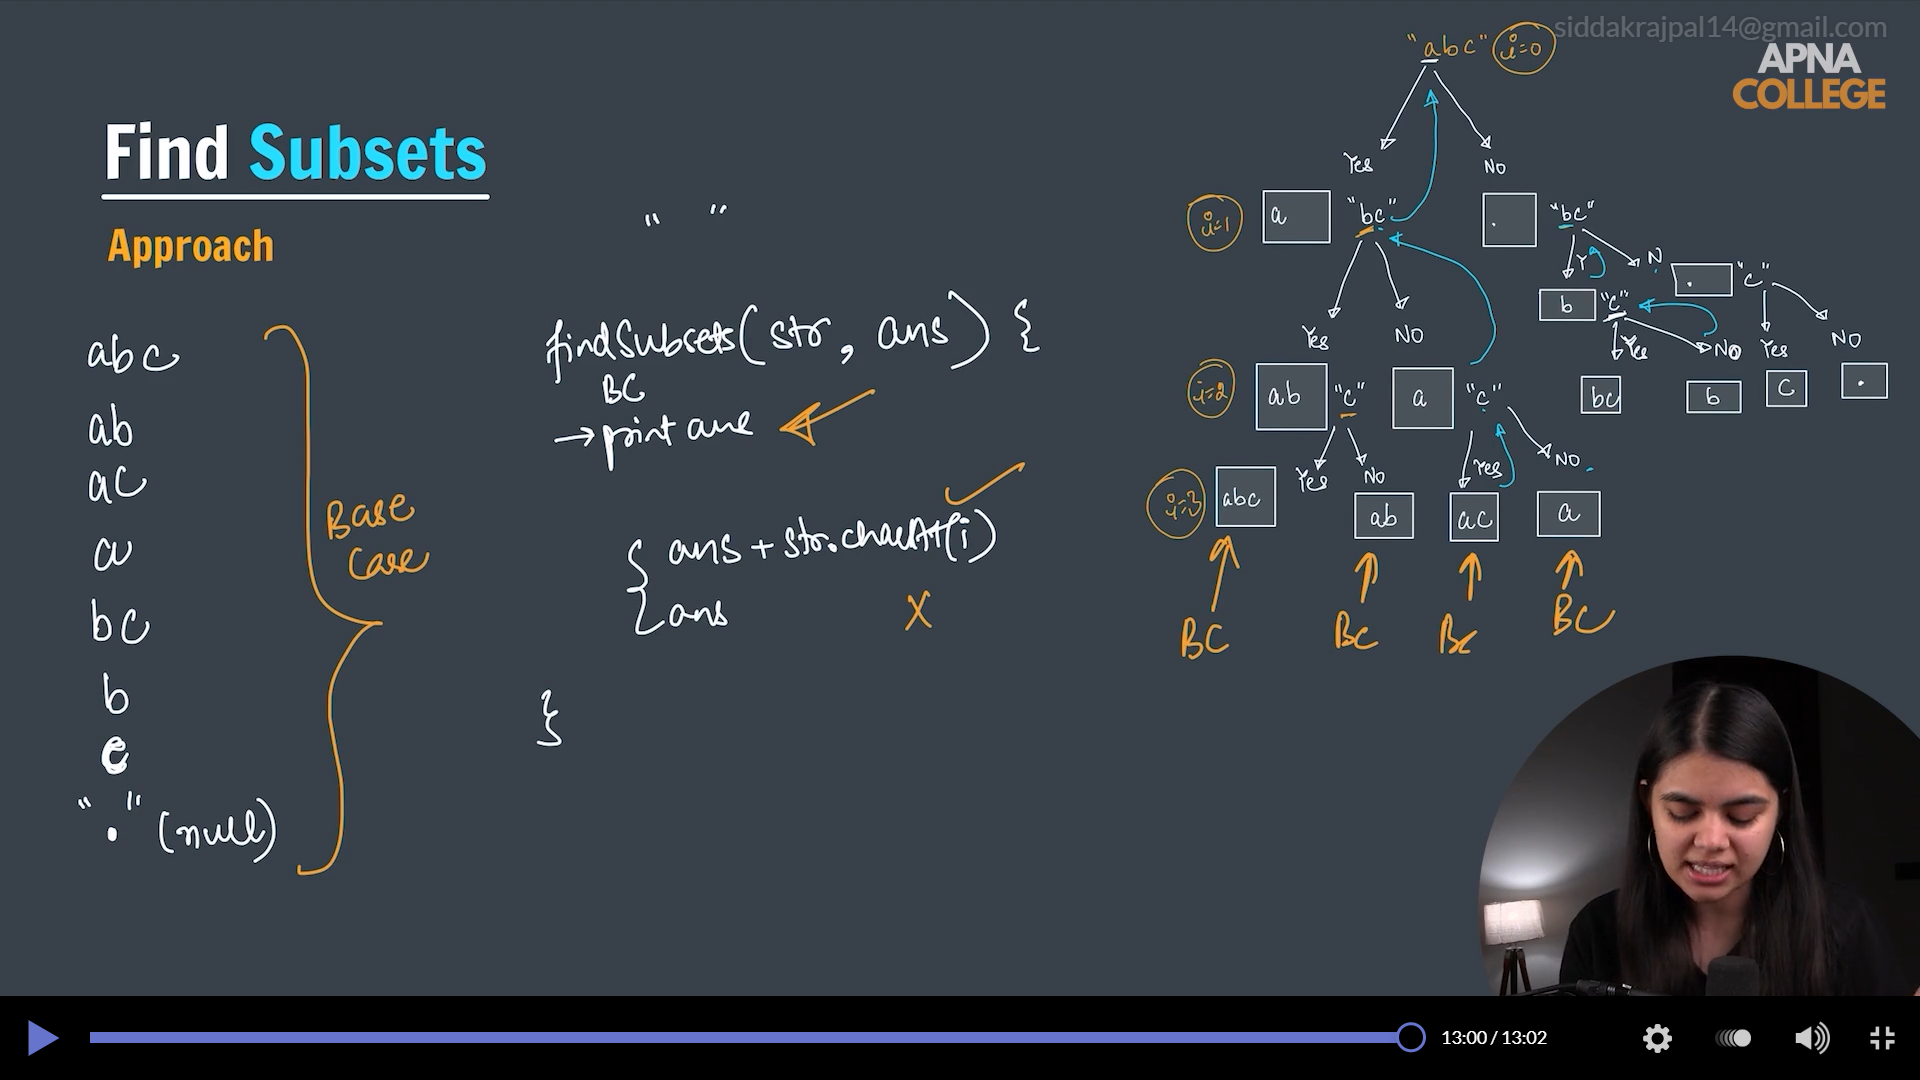 siddakrajpal14@gmail.com
APNA
COLLEGE
Find Subsets
Approach
abc
ab
ac
a
bc
b
c
" . " (null)
Base
Case
" "
findSubsets(str, ans) {
BC
→ print ans
{ ans + str.charAt(i)
ans X
}
"abc" i=0
Yes No
i=1 a "bc" . "bc"
Y N
b "c" . "c"
Yes No Yes No
bc b c .
Yes No
i=2 ab "c" a "c"
Yes No Yes No
i=3 abc ab ac a
BC BC BC BC
13:00 / 13:02